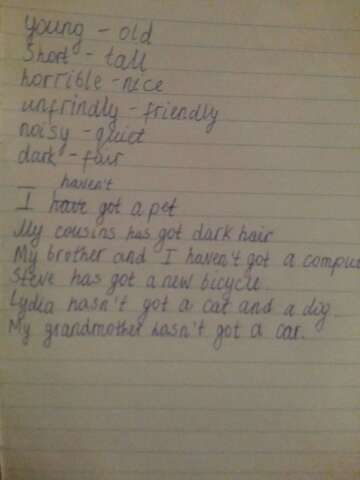 young - old
Short - tall
horrible - nice
unfrindly - friendly
noisy - quiet
dark - fair
haven't
I have got a pet
My cousins has got dark hair
My brother and I haven't got a compu
Steve has got a new bicycle.
Lydia hasn't got a cat and a dig.
My grandmother hasn't got a car.